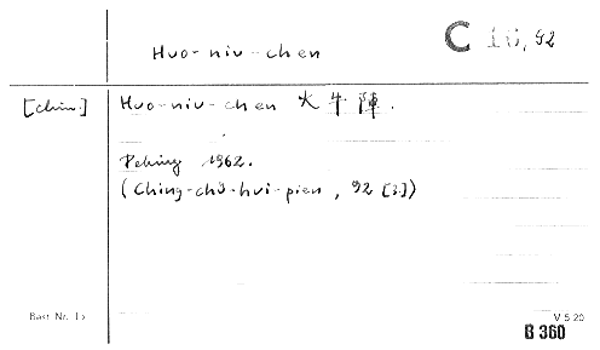 Huo-niu-chen
C 16, 92
[chin.]
Huo-niu-chen 火牛陣.
Peking 1962.
(Ching-chü-hui-pien, 92 [3.])
Best Nr. 15
V 5 20
B 360